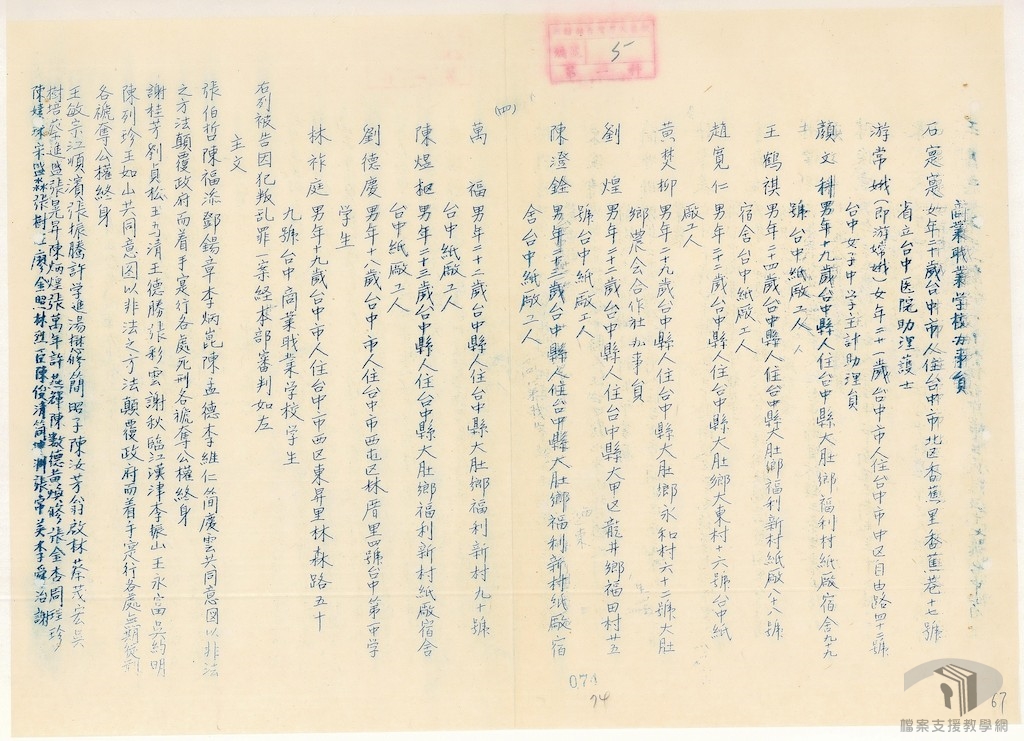 商業職業学校办事員
石寔寔 女年二十歲台中市人住台中市北区香蕉里香蕉巷十七號
省立台中医院助理護士
游常娥(即游嫦娥)女年二十一歲台中市人住台中市中区自由路四十二號
台中女子中学主計助理員
顏文耕 男年十九歲台中縣人住台中縣大肚鄉福利村紙廠宿舍九十九
號台中紙廠工人
王鶴祺 男年二十四歲台中縣人住台中縣大肚鄉福利新村紙廠八十八號
宿舍台中紙廠工人
趙寬仁 男年二十二歲台中縣人住台中縣大肚鄉大東村十六號台中紙
廠工人
黃焚柳 男年二十九歲台中縣人住台中縣大肚鄉永和村六十二號大肚
鄉農会合作社办事員
劉煌 男年二十二歲台中縣人住台中縣大甲区龍井鄉福田村廿五
號台中紙廠工人
陳澄銓 男年二十三歲台中縣人住台中縣大肚鄉福利新村紙廠宿
舍台中紙廠工人
(四)
萬福 男年二十二歲台中縣人住台中縣大肚鄉福利新村九十號
台中紙廠工人
陳煜樞 男年二十三歲台中縣人住台中縣大肚鄉福利新村紙廠宿舍
台中紙廠工人
劉德慶 男年十八歲台中市人住台中市西屯区林厝里四號台中第一中学
学生
林祚庭 男年十九歲台中市人住台中市西区東昇里林森路五十
九號台中商業職業学校学生
右列被告因犯叛乱罪一案経本部審判如左
主文
張伯哲陳福添鄧錫章李炳崑陳孟德李維仁簡慶雲共同意図以非法
之方法顛覆政府而着手寔行各處死刑各褫奪公權終身
謝桂芳劉貞松王五清王德勝張彩雲謝秋臨江漢津李振山王永富吳約明
陳列珍王如山共同意図以非法之方法顛覆政府而着手寔行各處無期徒刑
各褫奪公權終身
王敏宗江順濱張振騰許学進湯樹簡昭子陳汝芳翁啟林蔡茂宏吳
樹培蔡進盛張晃昇陳炳煌張萬年許燕輝陳數德黃煩滕張金杏周珍
陳宋盛淼張樹廖金照林烈臣陳俊清簡張常美李舜治謝
5
074
74
67
檔案支援教學網